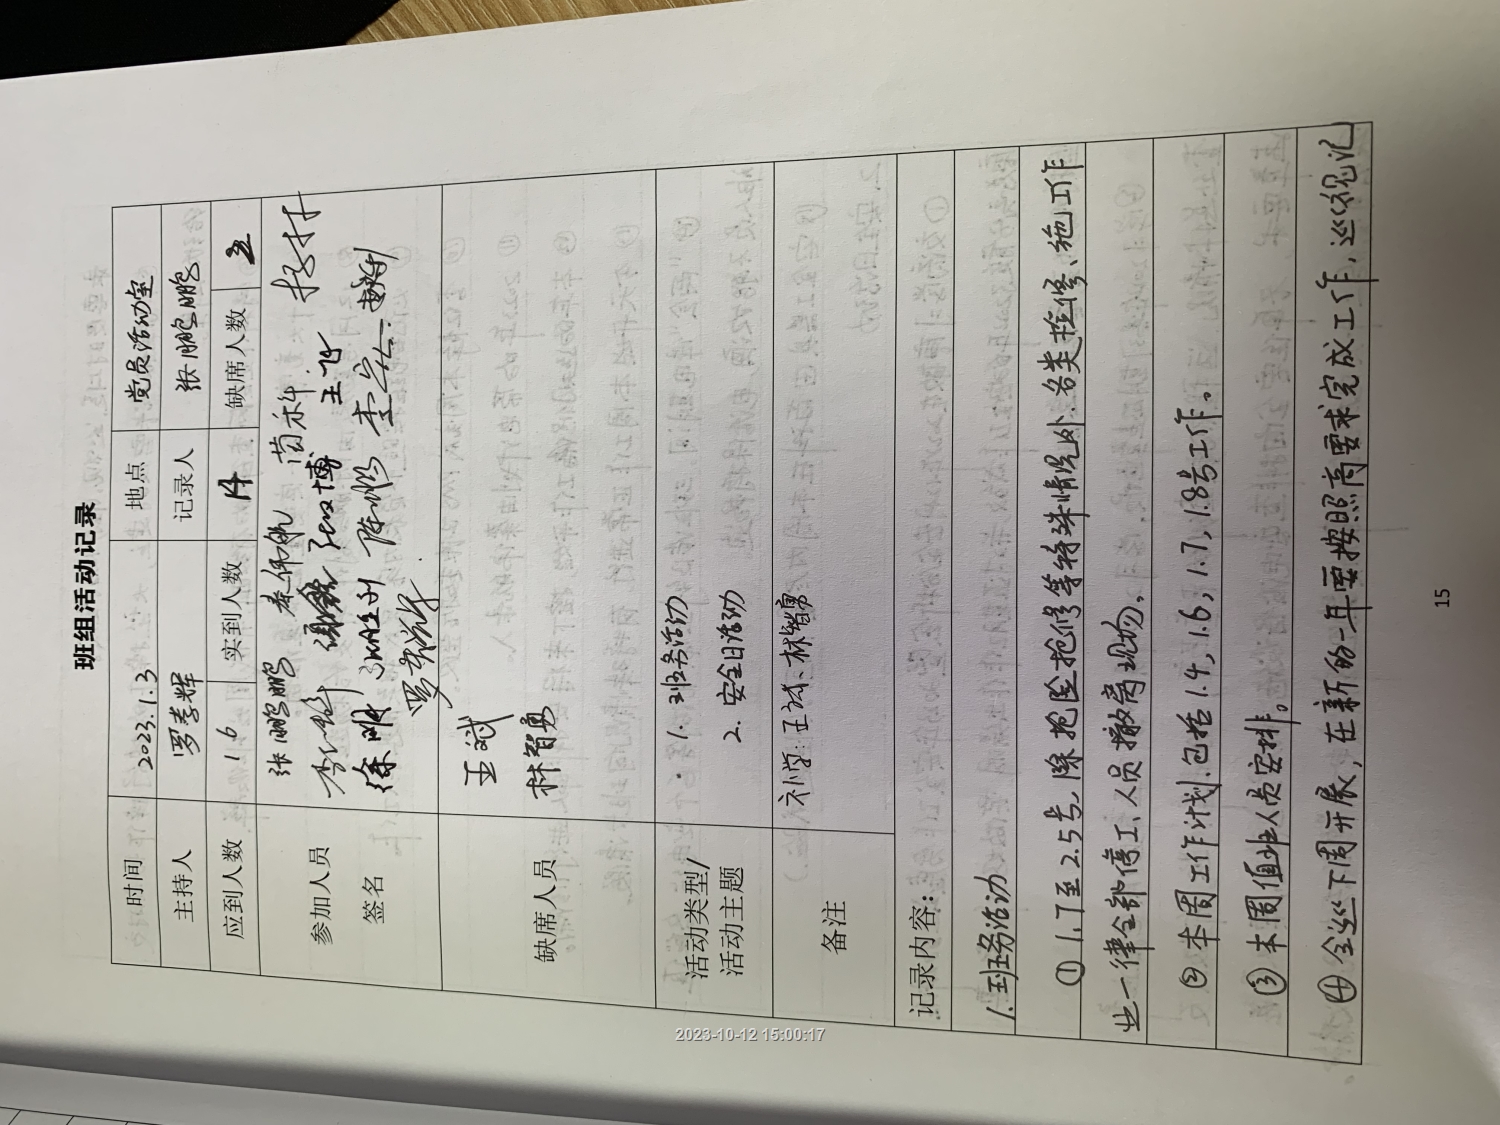 班组活动记录
时间 2023.1.3 地点 党员活动室
主持人 罗孝辉 记录人 张鹏鹏
应到人数 16 实到人数 14 缺席人数 2
参加人员
签名
张鹏鹏 秦仰航 苗科
张博 王飞
徐明 陈彬 李宏
缺席人员
王斌
林智勇
活动类型/
活动主题
1. 班务活动
2. 安全日活动
备注 补学: 王斌、林智勇
记录内容:
1. 班务活动
① 1.7至2.5号,除抢险抢修等特殊情况外,各类检修、施工作
业一律全部停工、人员撤离现场。
② 本周工作计划,包括1.4,1.6,1.7,1.8号工作。
③ 本周值班人员安排。
④ 全巡下周开展,在新的一年要按照高要求完成工作,巡视记
15
2023-10-12 15:00:17